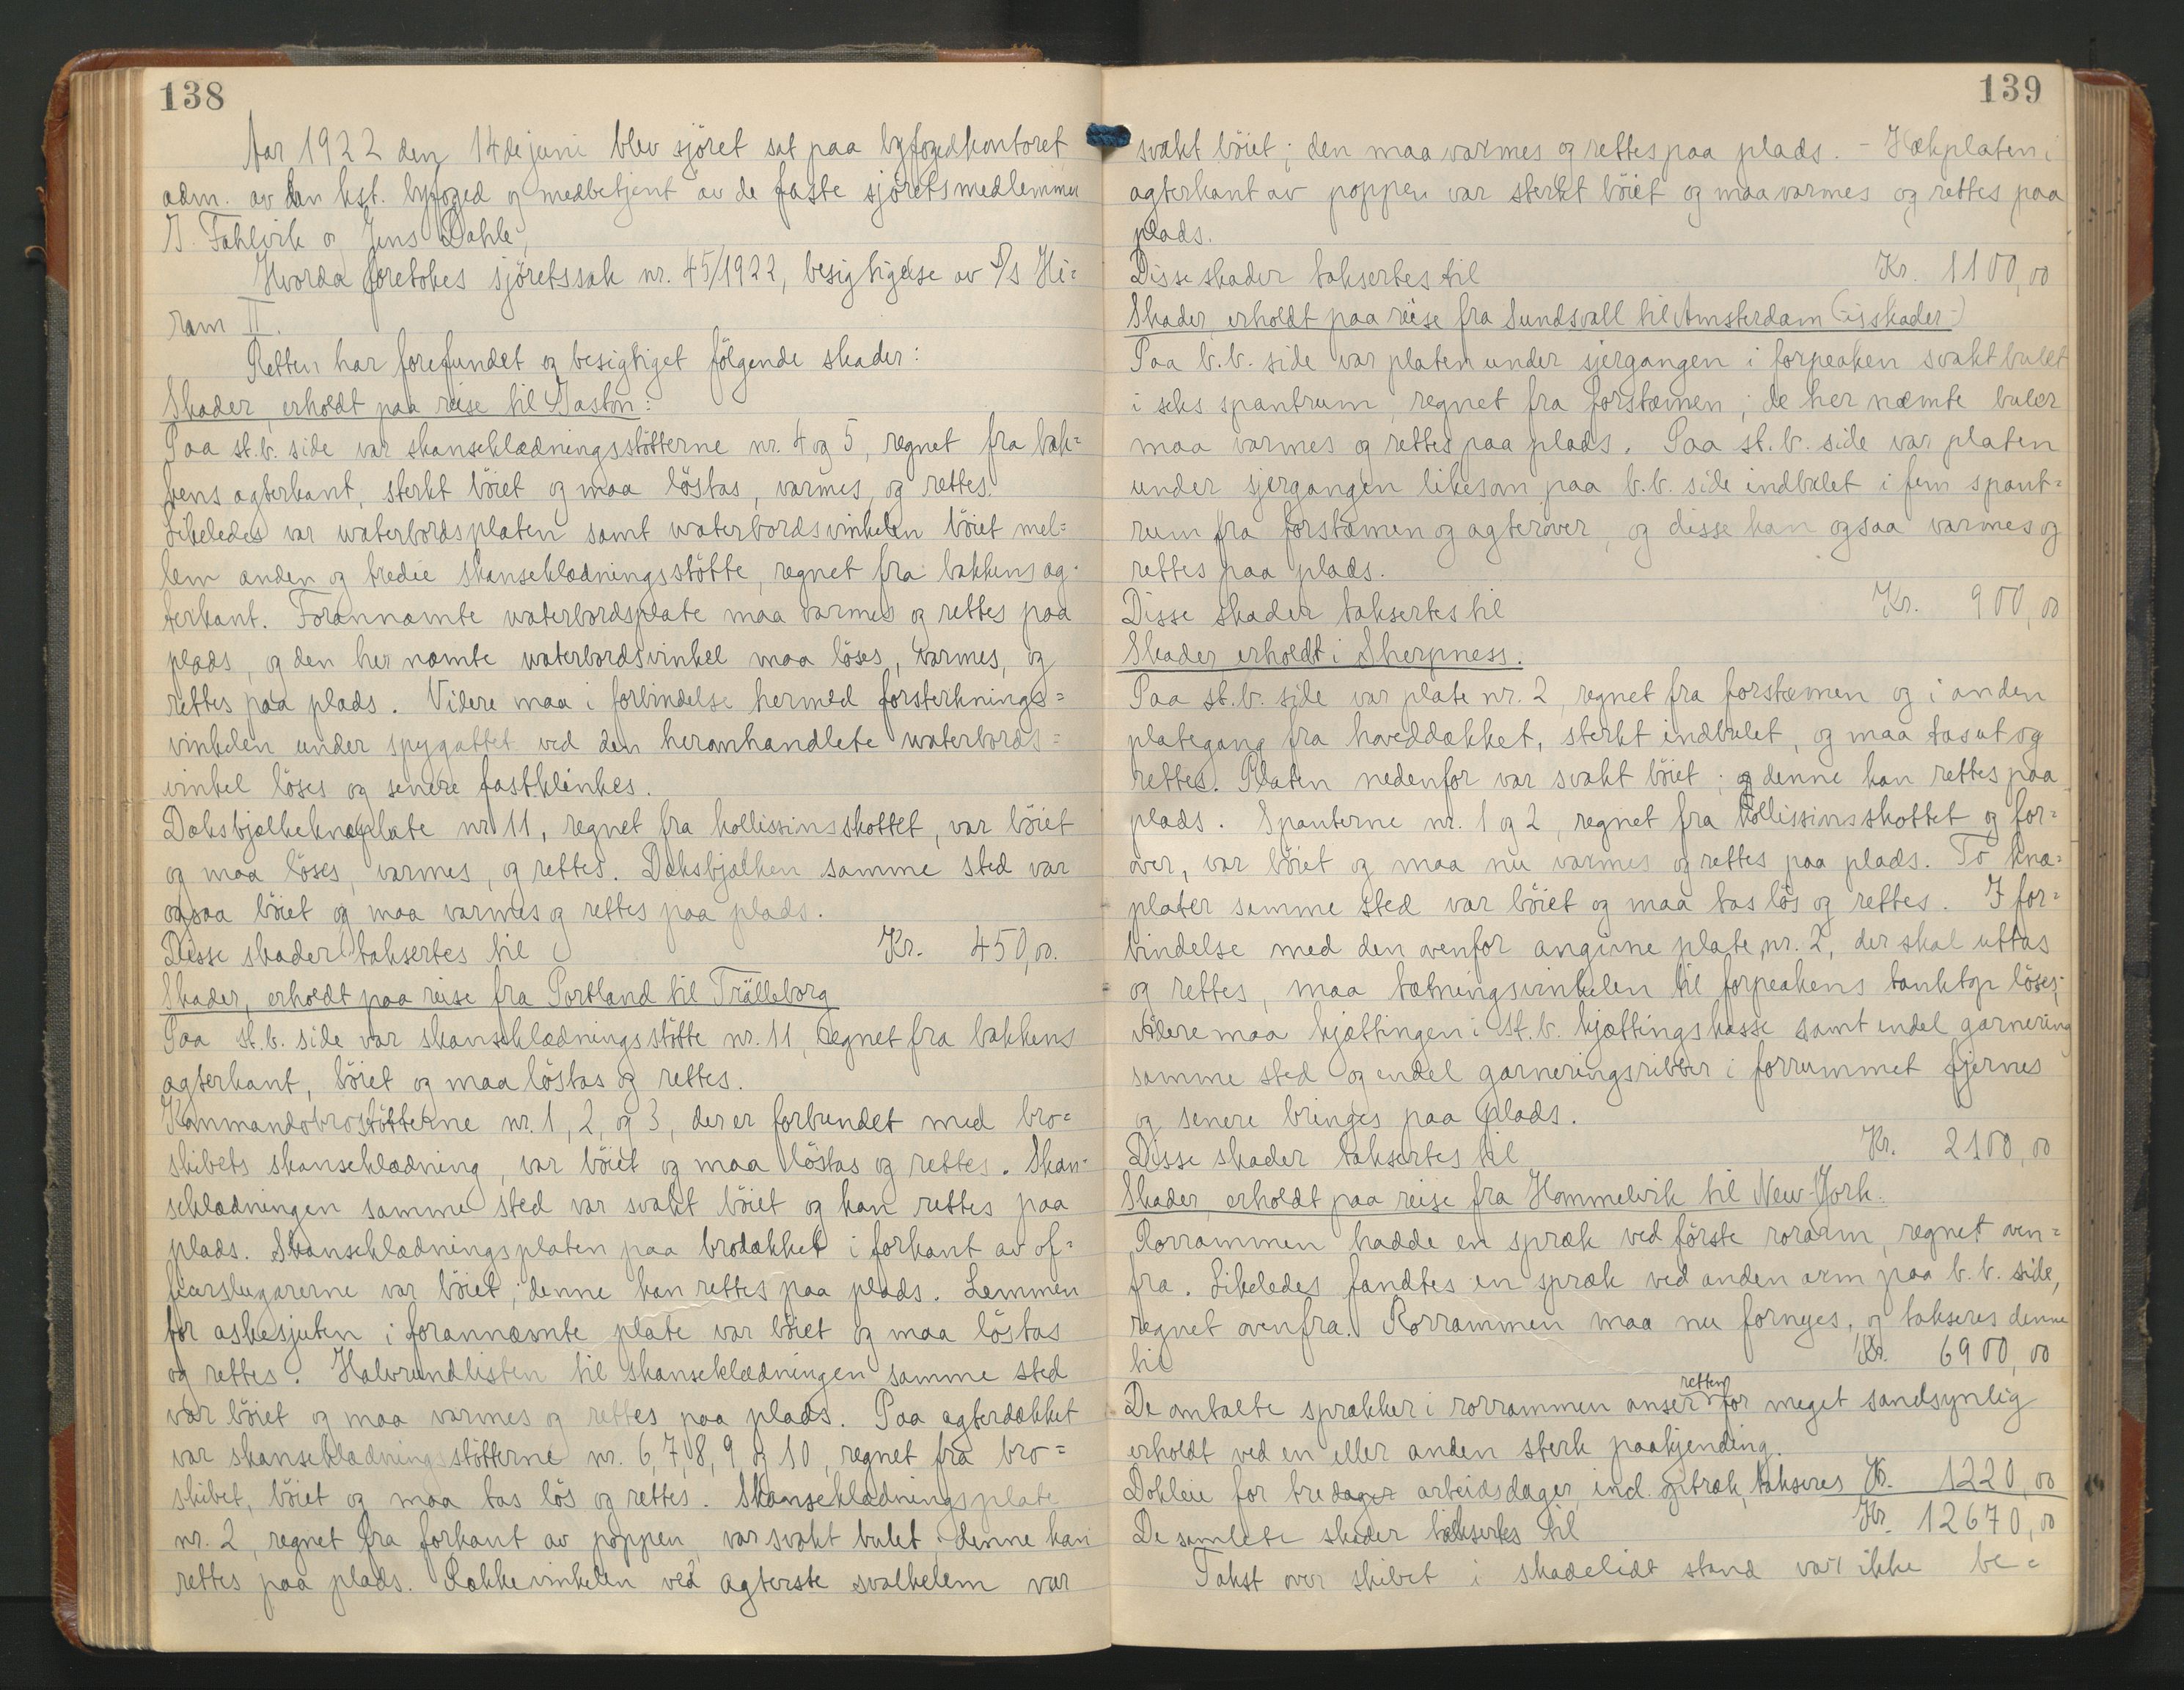 138
Aar 1922 den 14de juni blev sjöret sat paa byfogedkontoret
adm. av den kst. byfoged og medbetjent av de faste sjöretsmedlemmer
J. Fahlvik og Jens Dahle,
Hvorda foretokes sjöretssak nr. 45/1922, besigtigelse av S/S Hi=
ram II.
Retten har forefundet og besigtiget fölgende skader:
Skader, erholdt paa reise til Gaston:
Paa st.b. side var skanseklædningsstötterne nr. 4 og 5, regnet fra bak=
kens agterkant, sterkt böiet og maa löstas, varmes, og rettes.
Likeledes var waterbordsplaten samt waterbordsvinkelen böiet mel=
lem anden og tredie skanseklædningsstötte, regnet fra bakkens ag-
terkant. Forannæmte waterbordsplate maa varmes og rettes paa
plads, og den her næmte waterbordsvinkel maa löses, varmes, og
rettes paa plads. Videre maa i forbindelse hermed forsterknings=
vinkelen under spygattet ved den heromhandlete waterbords=
vinkel löses og senere fastklinkes.
Dæksbjælkeknæplate nr 11, regnet fra kollissinsskottet, var böiet
og maa löses, varmes, og rettes. Dæksbjælken samme sted var
ogsaa böiet og maa varmes og rettes paa plads.
Disse skader taksertes til Kr. 450,00.
Skader, erholdt paa reise fra Portland til Trälleborg
Paa st.b. side var skanseklædningsstötte nr. 11, regnet fra bakkens
agterkant, böiet og maa löstas og rettes.
Kommandobrostötterne nr. 1, 2, og 3, der er forbundet med bro=
skibets skanseklædning, var böiet og maa löstas og rettes. Skan-
seklædningen samme sted var svakt böiet og kan rettes paa
plads. Skanseklædningsplaten paa brodækket i forkant av of=
ficerslugarerne var böiet; denne kan rettes paa plads. Lemmen
for askesjuten i forannæmte plate var böiet og maa löstas
og rettes. Halvrundlisten til skanseklædningen samme sted
var böiet og maa varmes og rettes paa plads. Paa agterdækket
var skanseklædningsstötterne nr. 6, 7, 8, 9 og 10, regnet fra bro=
skibet, böiet og maa tas lös og rettes. Skanseklædningsplate
nr. 2, regnet fra forkant av poppen, var svakt bulet; denne kan
rettes paa plads. Rækkevinkelen ved agterste svalkelem var
139
svakt böiet; den maa varmes og rettes paa plads. - Hækplaten i
agterkant av poppen var sterkt böiet og maa varmes og rettes paa
plads.
Disse skader taksertes til Kr. 1100,00
Skader, erholdt paa reise fra Sundsvall til Amsterdam (isskader)
Paa b.b. side var platen under sjergangen i forpeaken svakt bulet
i seks spantrum, regnet fra forstæmen; de her næmte buler
maa varmes og rettes paa plads. Paa st.b. side var platen
under sjergangen likesom paa b.b. side indbulet i fem spant=
rum fra forstæmen og agterover, og disse kan ogsaa varmes og
rettes paa plads.
Disse skader taksertes til Kr. 900,00
Skader erholdt i Sherpness.
Paa st.b. side var plate nr. 2, regnet fra forstæmen og i anden
plategang fra hoveddækket, sterkt indbulet, og maa tas ut og
rettes. Platen nedenfor var svakt böiet; og denne kan rettes paa
plads. Spanterne nr. 1 og 2, regnet fra kollissinsskottet og for=
over, var böiet og maa nu varmes og rettes paa plads. To knæ=
plater samme sted var böiet og maa tas lös og rettes. I for=
bindelse med den ovenfor angivne plate, nr. 2, der skal uttas
og rettes, maa tætningsvinkelen til forpeakens tanktop löses;
videre maa kjættingen i st.b. kjættingskasse samt endel garnering
samme sted og endel garneringsribber i forrummet fjernes
og senere bringes paa plads.
Disse skader taksertes til Kr. 2100,00
Skader, erholdt paa reise fra Hommelvik til New-York.
Rorrammen hadde en spræk ved förste rorarm, regnet oven=
fra. Likeledes fandtes en spræk ved anden arm paa b.b. side,
regnet ovenfra. Rorrammen maa nu fornyes, og takseres denne
til Kr. 6900,00
De omtalte sprækker i rorrammen anser retten for meget sandsynlig
erholdt ved en eller anden sterk paakjending.
Dokleie for tre dager arbeidsdager, incl. optræk, takseres Kr. 1220,00
De samlete skader taksertes til Kr. 12670,00
Takst over skibet i skadelidt stand var ikke be=